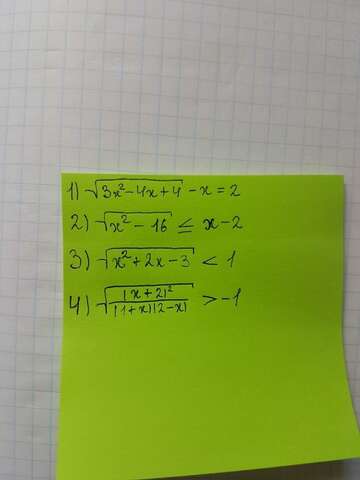 1) √(3x²-4x+4) - x = 2
2) √(x² - 16) ≤ x - 2
3) √(x² + 2x - 3) < 1
4) √((x+2)²/((1+x)(2-x))) > -1